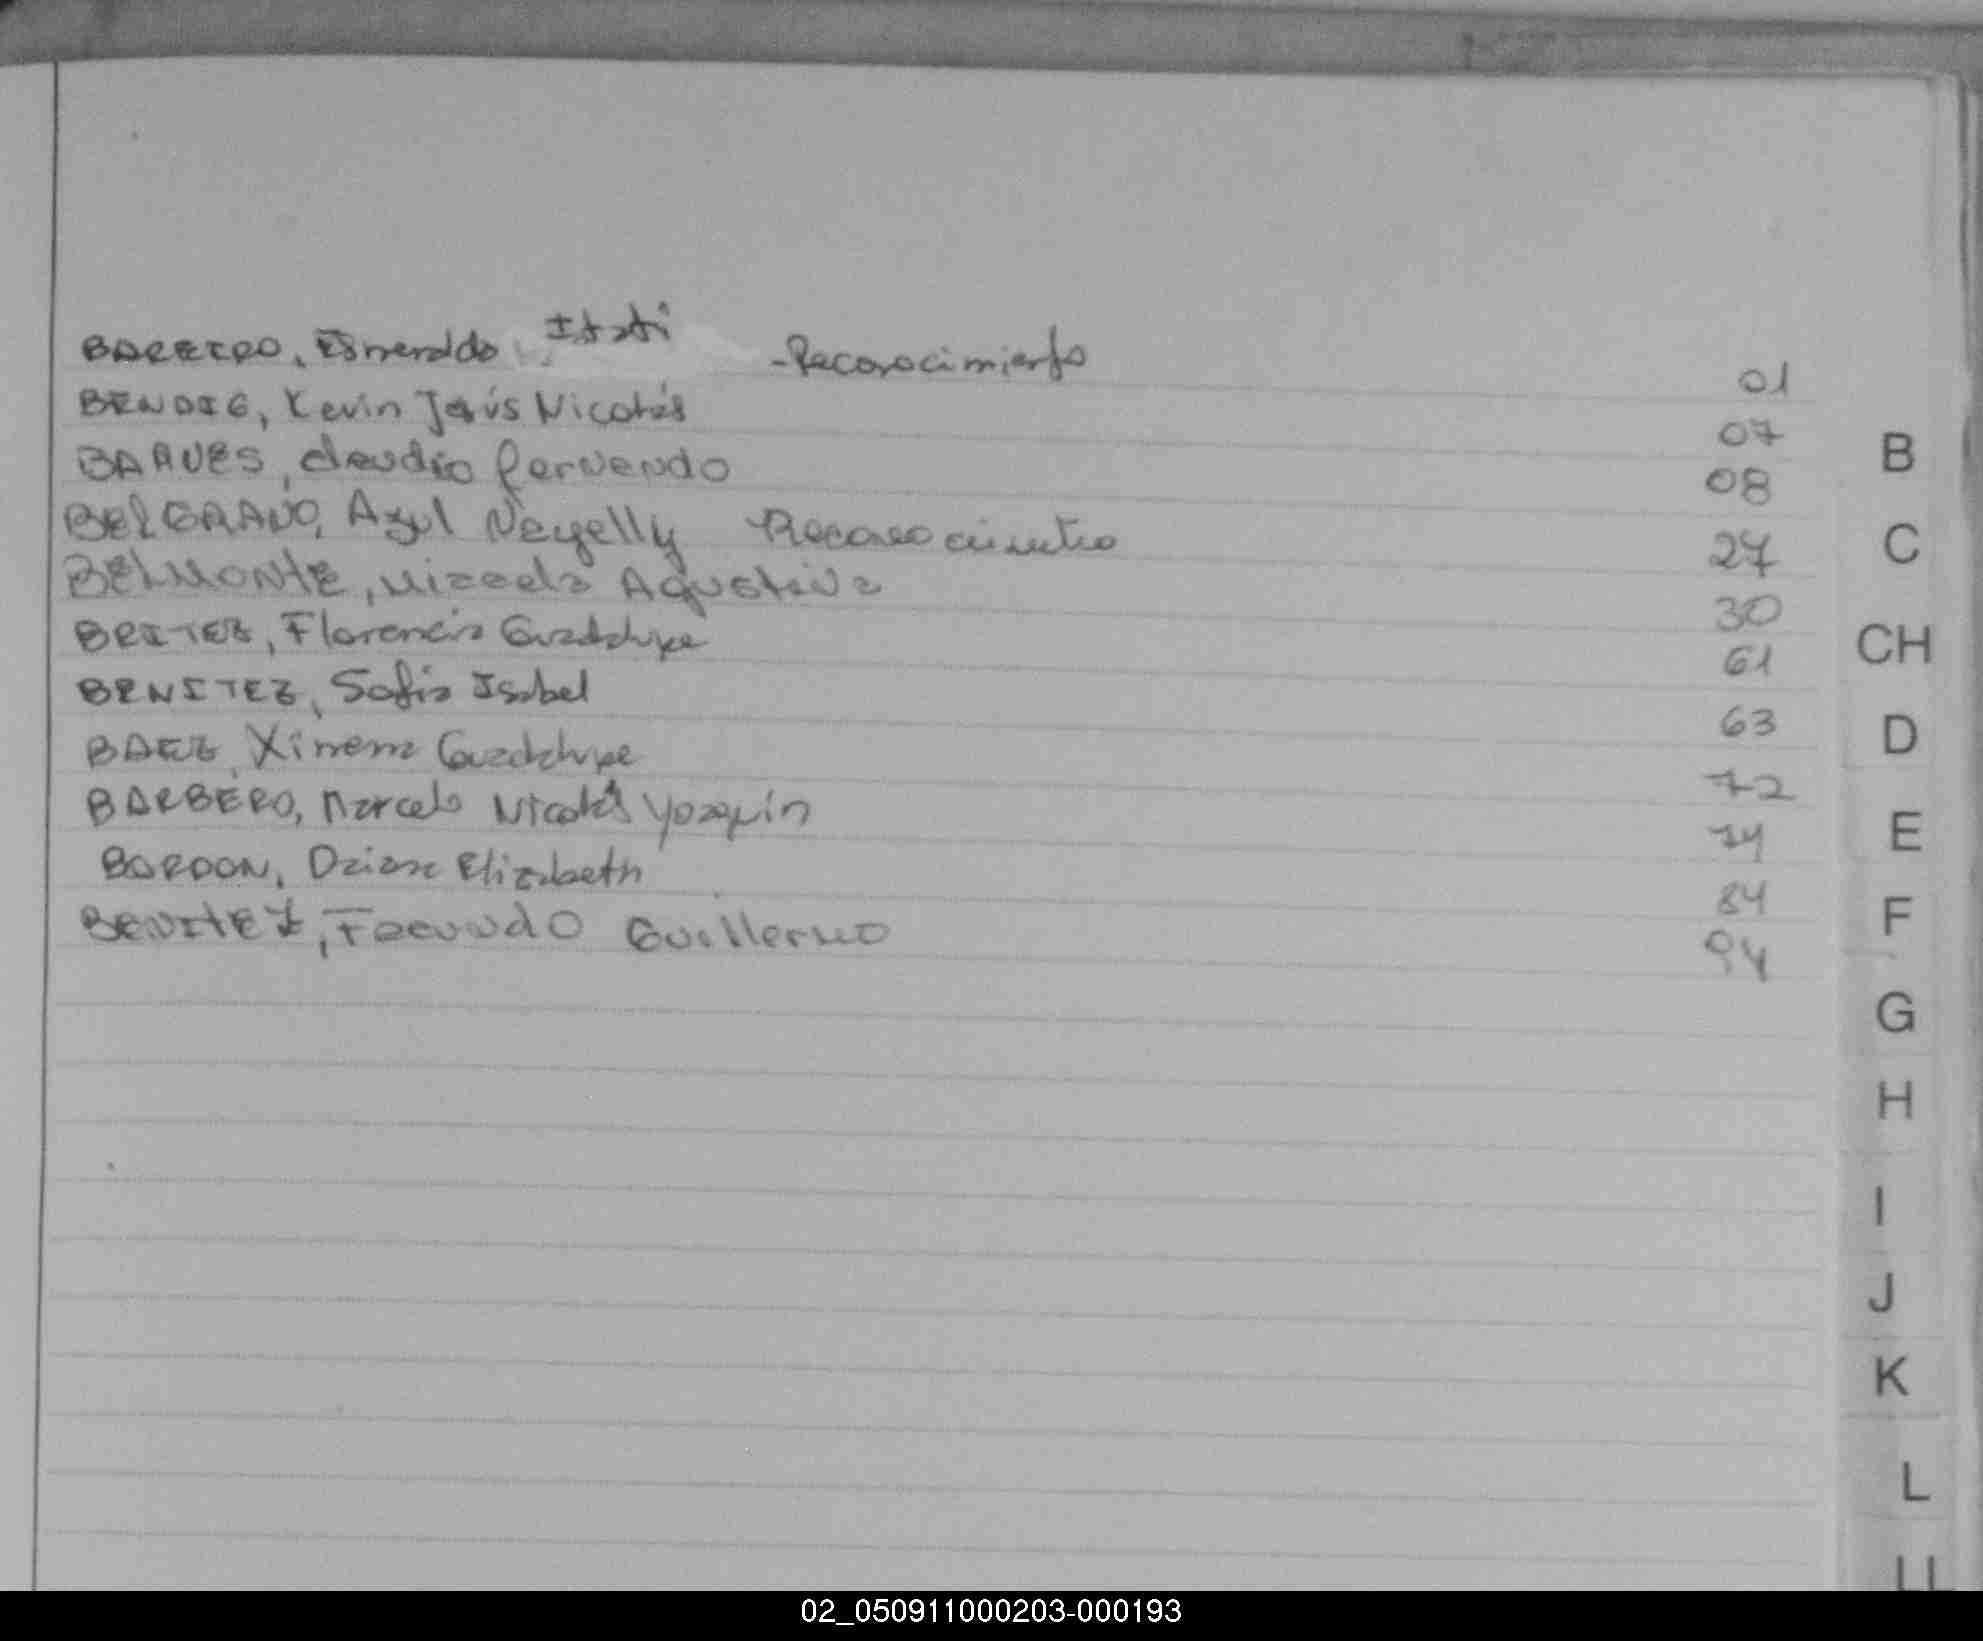 BAREIRO, Esmeralda Itatí - Reconocimiento 01
BENDIG, Kevin Jesús Nicolás 07
BARUES, Claudio Fernando 08
BELGRANO, Azul Neyelly Reconocimiento 27
BELMONTE, Micaela Agustina 30
BRITEZ, Florencia Guadalupe 61
BENITEZ, Sofia Isabel 63
BAEZ, Ximena Guadalupe 72
BARBERO, Marcelo Nicolás Yoaquín 74
BORDON, Daiana Elizabeth 84
BENITEZ, Facundo Guillermo 94
B
C
CH
D
E
F
G
H
I
J
K
L
LL
02_050911000203-000193